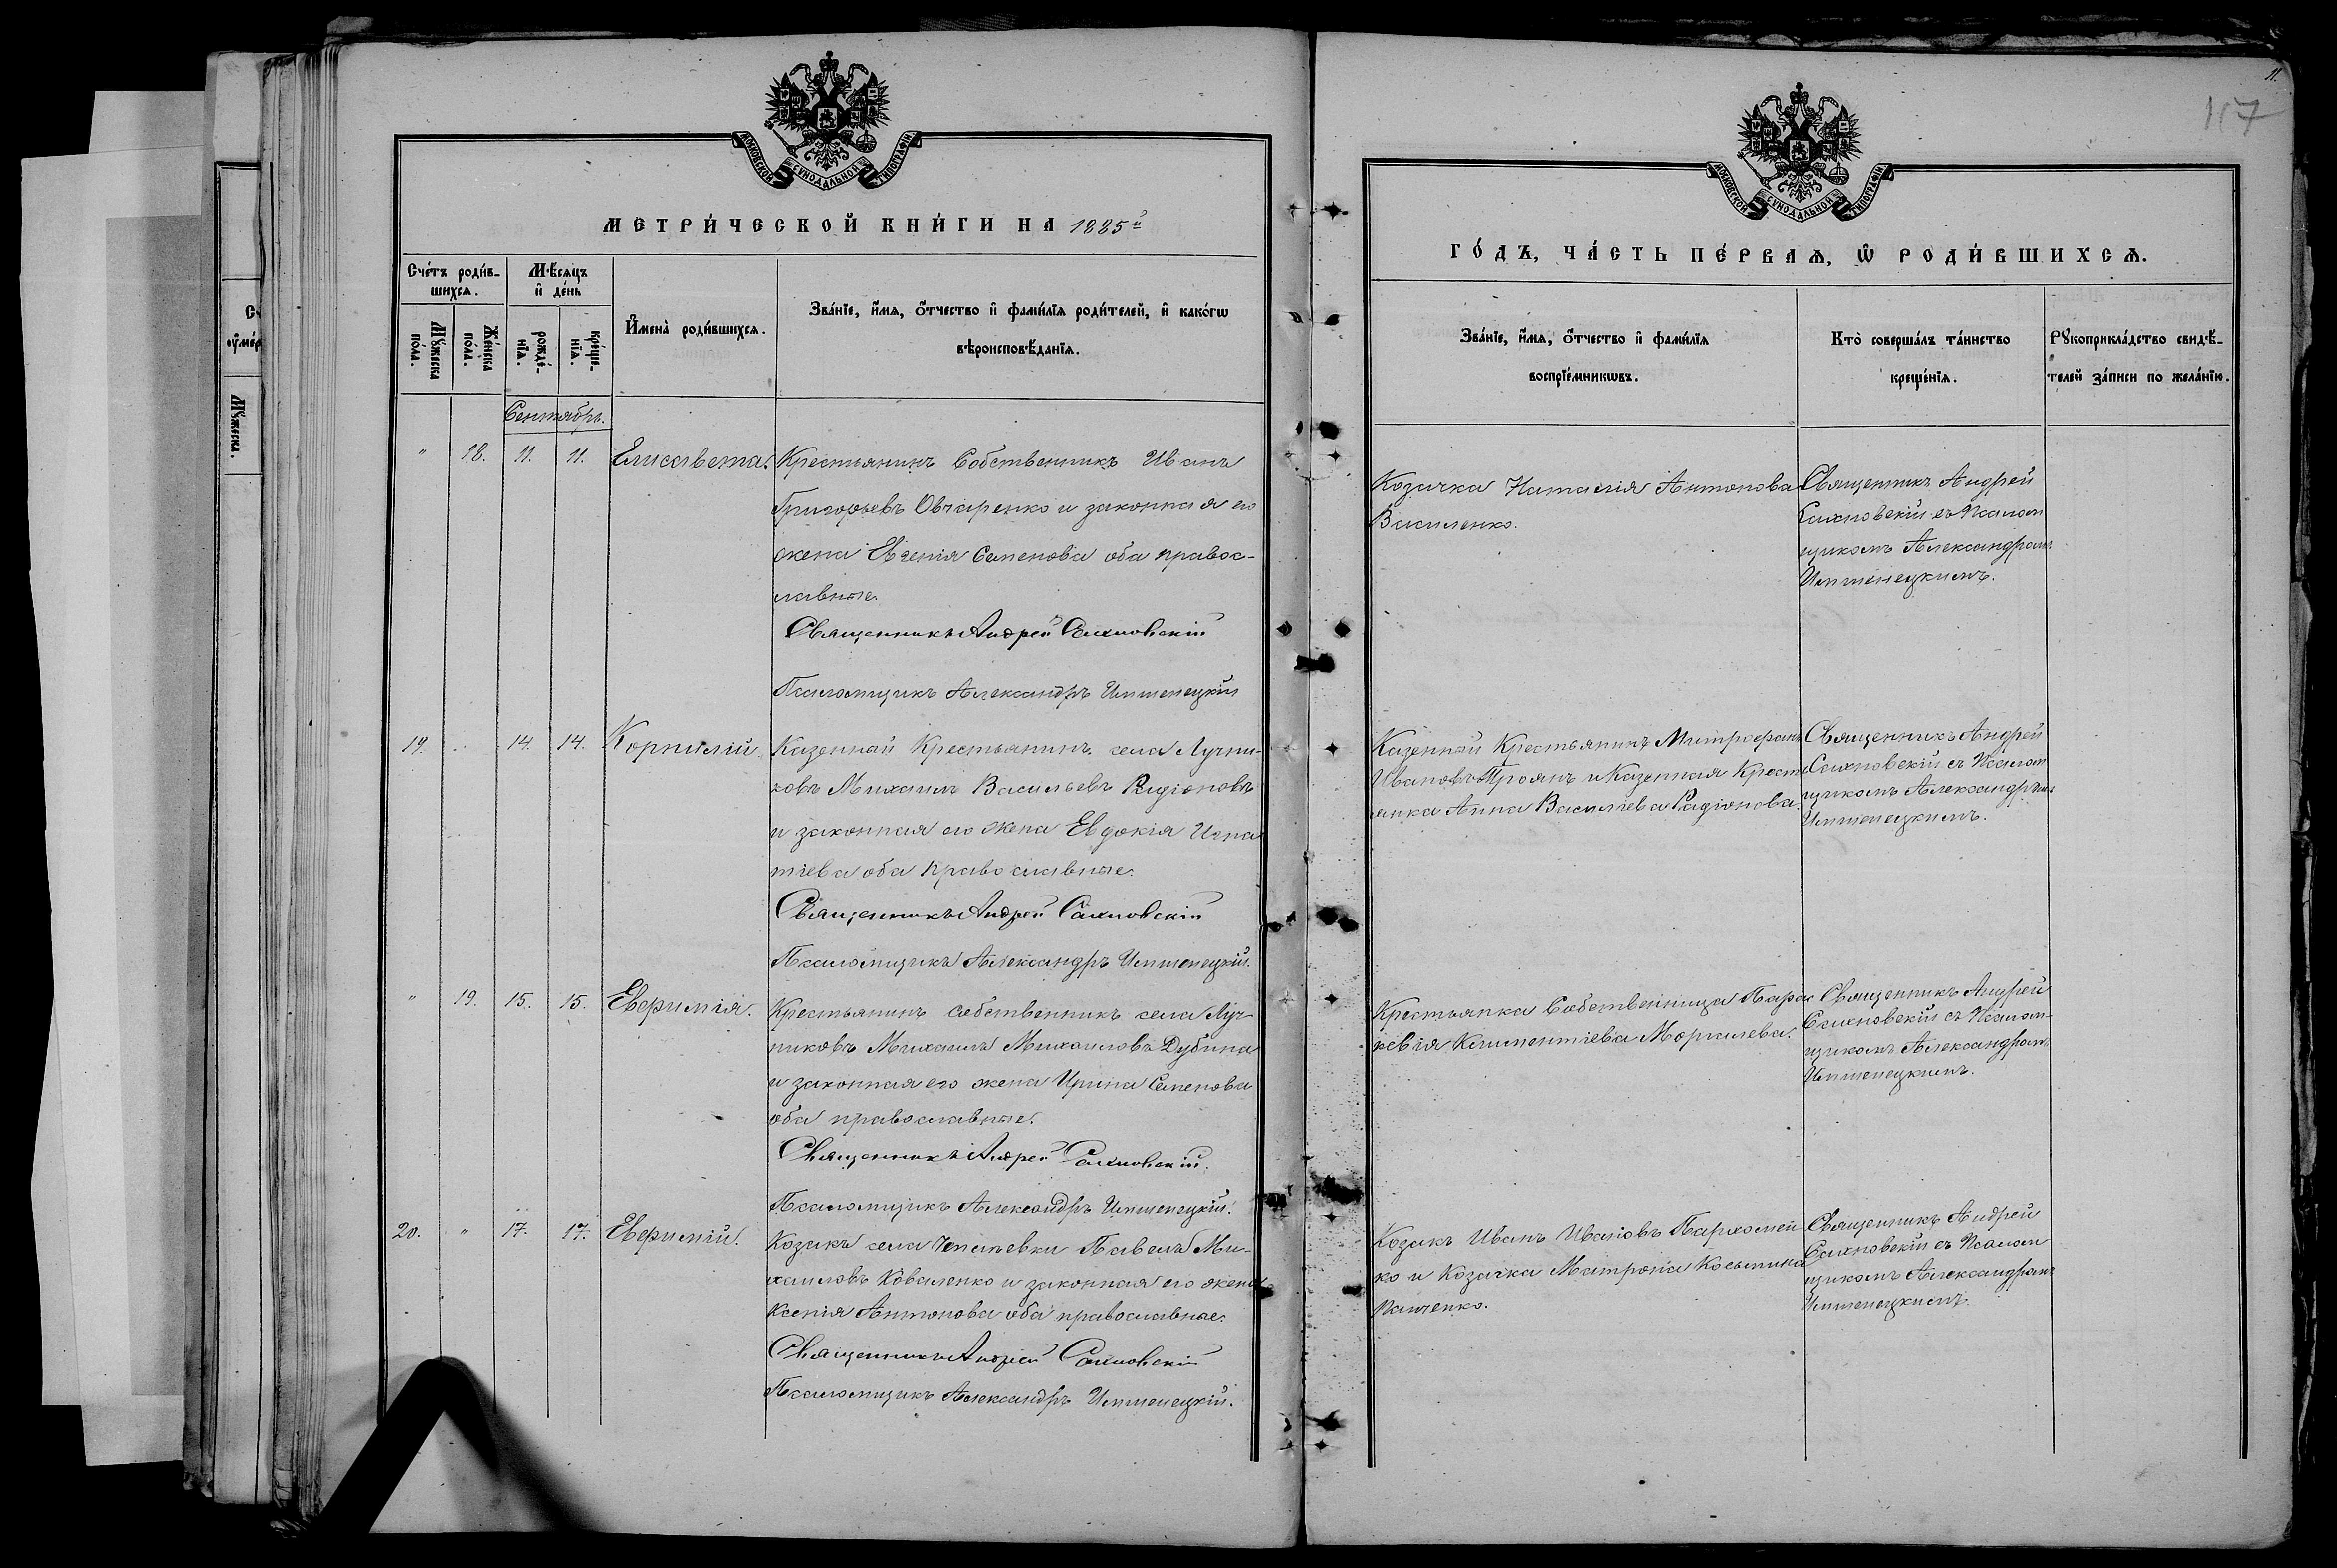 МОСКОВСКОЙ СѴНОДАЛЬНОЙ ТИПОГРАФІИ
МЕТРИ́ЧЕСКОЙ КНИ́ГИ НА 1885й
Сче́тъ роди́в-
шихся.
Мѣ́сяцъ
и҆ де́нь
Мꙋ́жеска
по́ла.
Же́нска
по́ла.
рожде́-
нїѧ.
креще́-
нїѧ.
И҆мена̀ роди́вшихсѧ.
Зва́нїе, и҆́мѧ, ѻ҆́тчество и҆ фами́лїѧ роди́телей, и҆ како́гѡ
вѣроисповѣ́данїѧ.
Сентябрь.
" 18. 11. 11. Елисавета. Крестьянинъ Собственникъ Иванъ
Григорьевъ Овчаренко и законная его
жена Евгенія Семенова оба правос-
лавные.
Священникъ Андрей Сахновскій
Псаломщикъ Александръ Имшенецкій
19. " 14. 14. Корнилій. Казенный Крестьянинъ села Лучни-
ковъ Михаилъ Васильевъ Радіоновъ
и законная его жена Евдокія Игна
тіева оба православные.
Священникъ Андрей Сахновскій
Псаломщикъ Александръ Имшенецкій.
" 19. 15. 15. Евфимія. Крестьянинъ собственникъ села Луч-
никовъ Михаилъ Михаиловъ Дубина
и законная его жена Ирина Семенова
оба православные.
Священникъ Андрей Сахновскій.
Псаломщикъ Александръ Имшенецкій.
20. " 17. 17. Евфимій. Козакъ села Чепаевки Павелъ Ми-
хаиловъ Коваленко и законная его жена
Ксенія Антонова оба православные.
Священникъ Андрей Сахновскій
Псаломщикъ Александръ Имшенецкій.
11.
117
МОСКОВСКОЙ СѴНОДАЛЬНОЙ ТИПОГРАФІИ
ГО́ДЪ, ЧА́СТЬ ПЕ́РВАѦ, Ѡ҆ РОДИ́ВШИХСѦ.
Зва́нїе, и҆́мѧ, ѻ҆́тчество и҆ фами́лїѧ
воспрїе́мникѡвъ.
Кто̀ соверша́лъ та́инство
креще́нїѧ.
Рꙋкоприкла́дство свидѣ́-
телей за́писи по жела́нїю.
Козачка Наталія Антонова
Василенко.
Священникъ Андрей
Сахновскій съ Псалом
щикомъ Александромъ
Имшенецкимъ.
Казенный Крестьянинъ Митрофанъ
Ивановъ Троянъ и Казенная Кресть
янка Анна Василіева Радіонова.
Священникъ Андрей
Сахновскій съ Псалом
щикомъ Александромъ
Имшенецкимъ.
Крестьянка Собственница Парас
кевія Климентіева Моргалева.
Священникъ Андрей
Сахновскій съ Псалом-
щикомъ Александромъ
Имшенецкимъ.
Козакъ Иванъ Ивановъ Пархомен
ко и Козачка Матрона Косьмина
Панченко.
Священникъ Андрей
Сахновскій съ Псалом
щикомъ Александромъ
Имшенецкимъ.